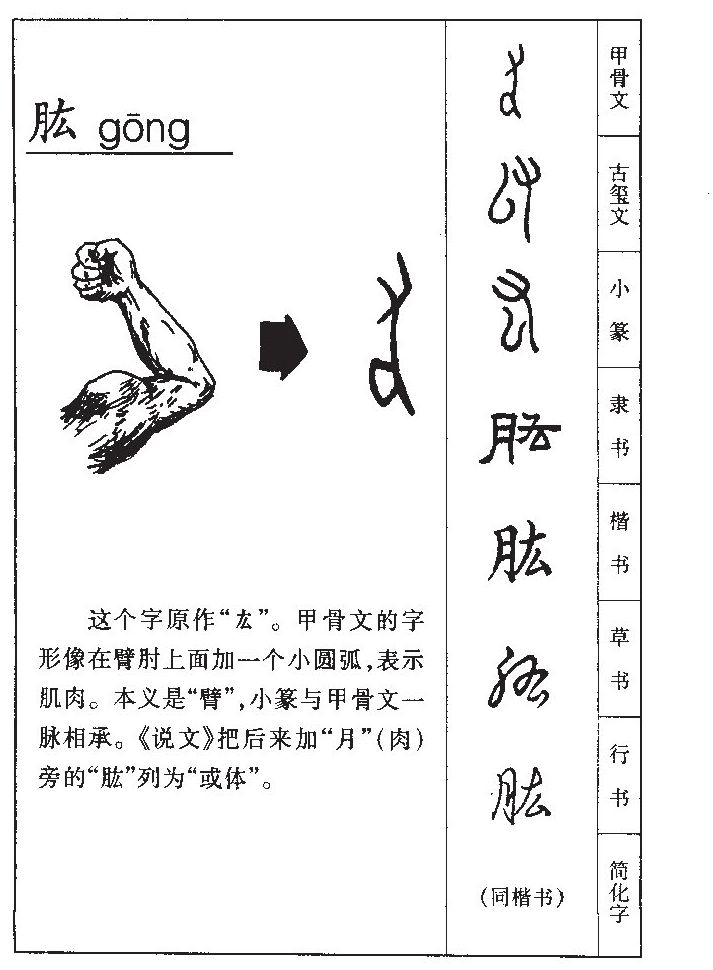 肱 gōng
这个字原作“厷”。甲骨文的字
形像在臂肘上面加一个小圆弧,表示
肌肉。本义是“臂”,小篆与甲骨文一
脉相承。《说文》把后来加“月”(肉)
旁的“肱”列为“或体”。
甲骨文
古玺文
小篆
隶书
肱
楷书
肱
草书
肱
行书
肱
简化字
(同楷书)